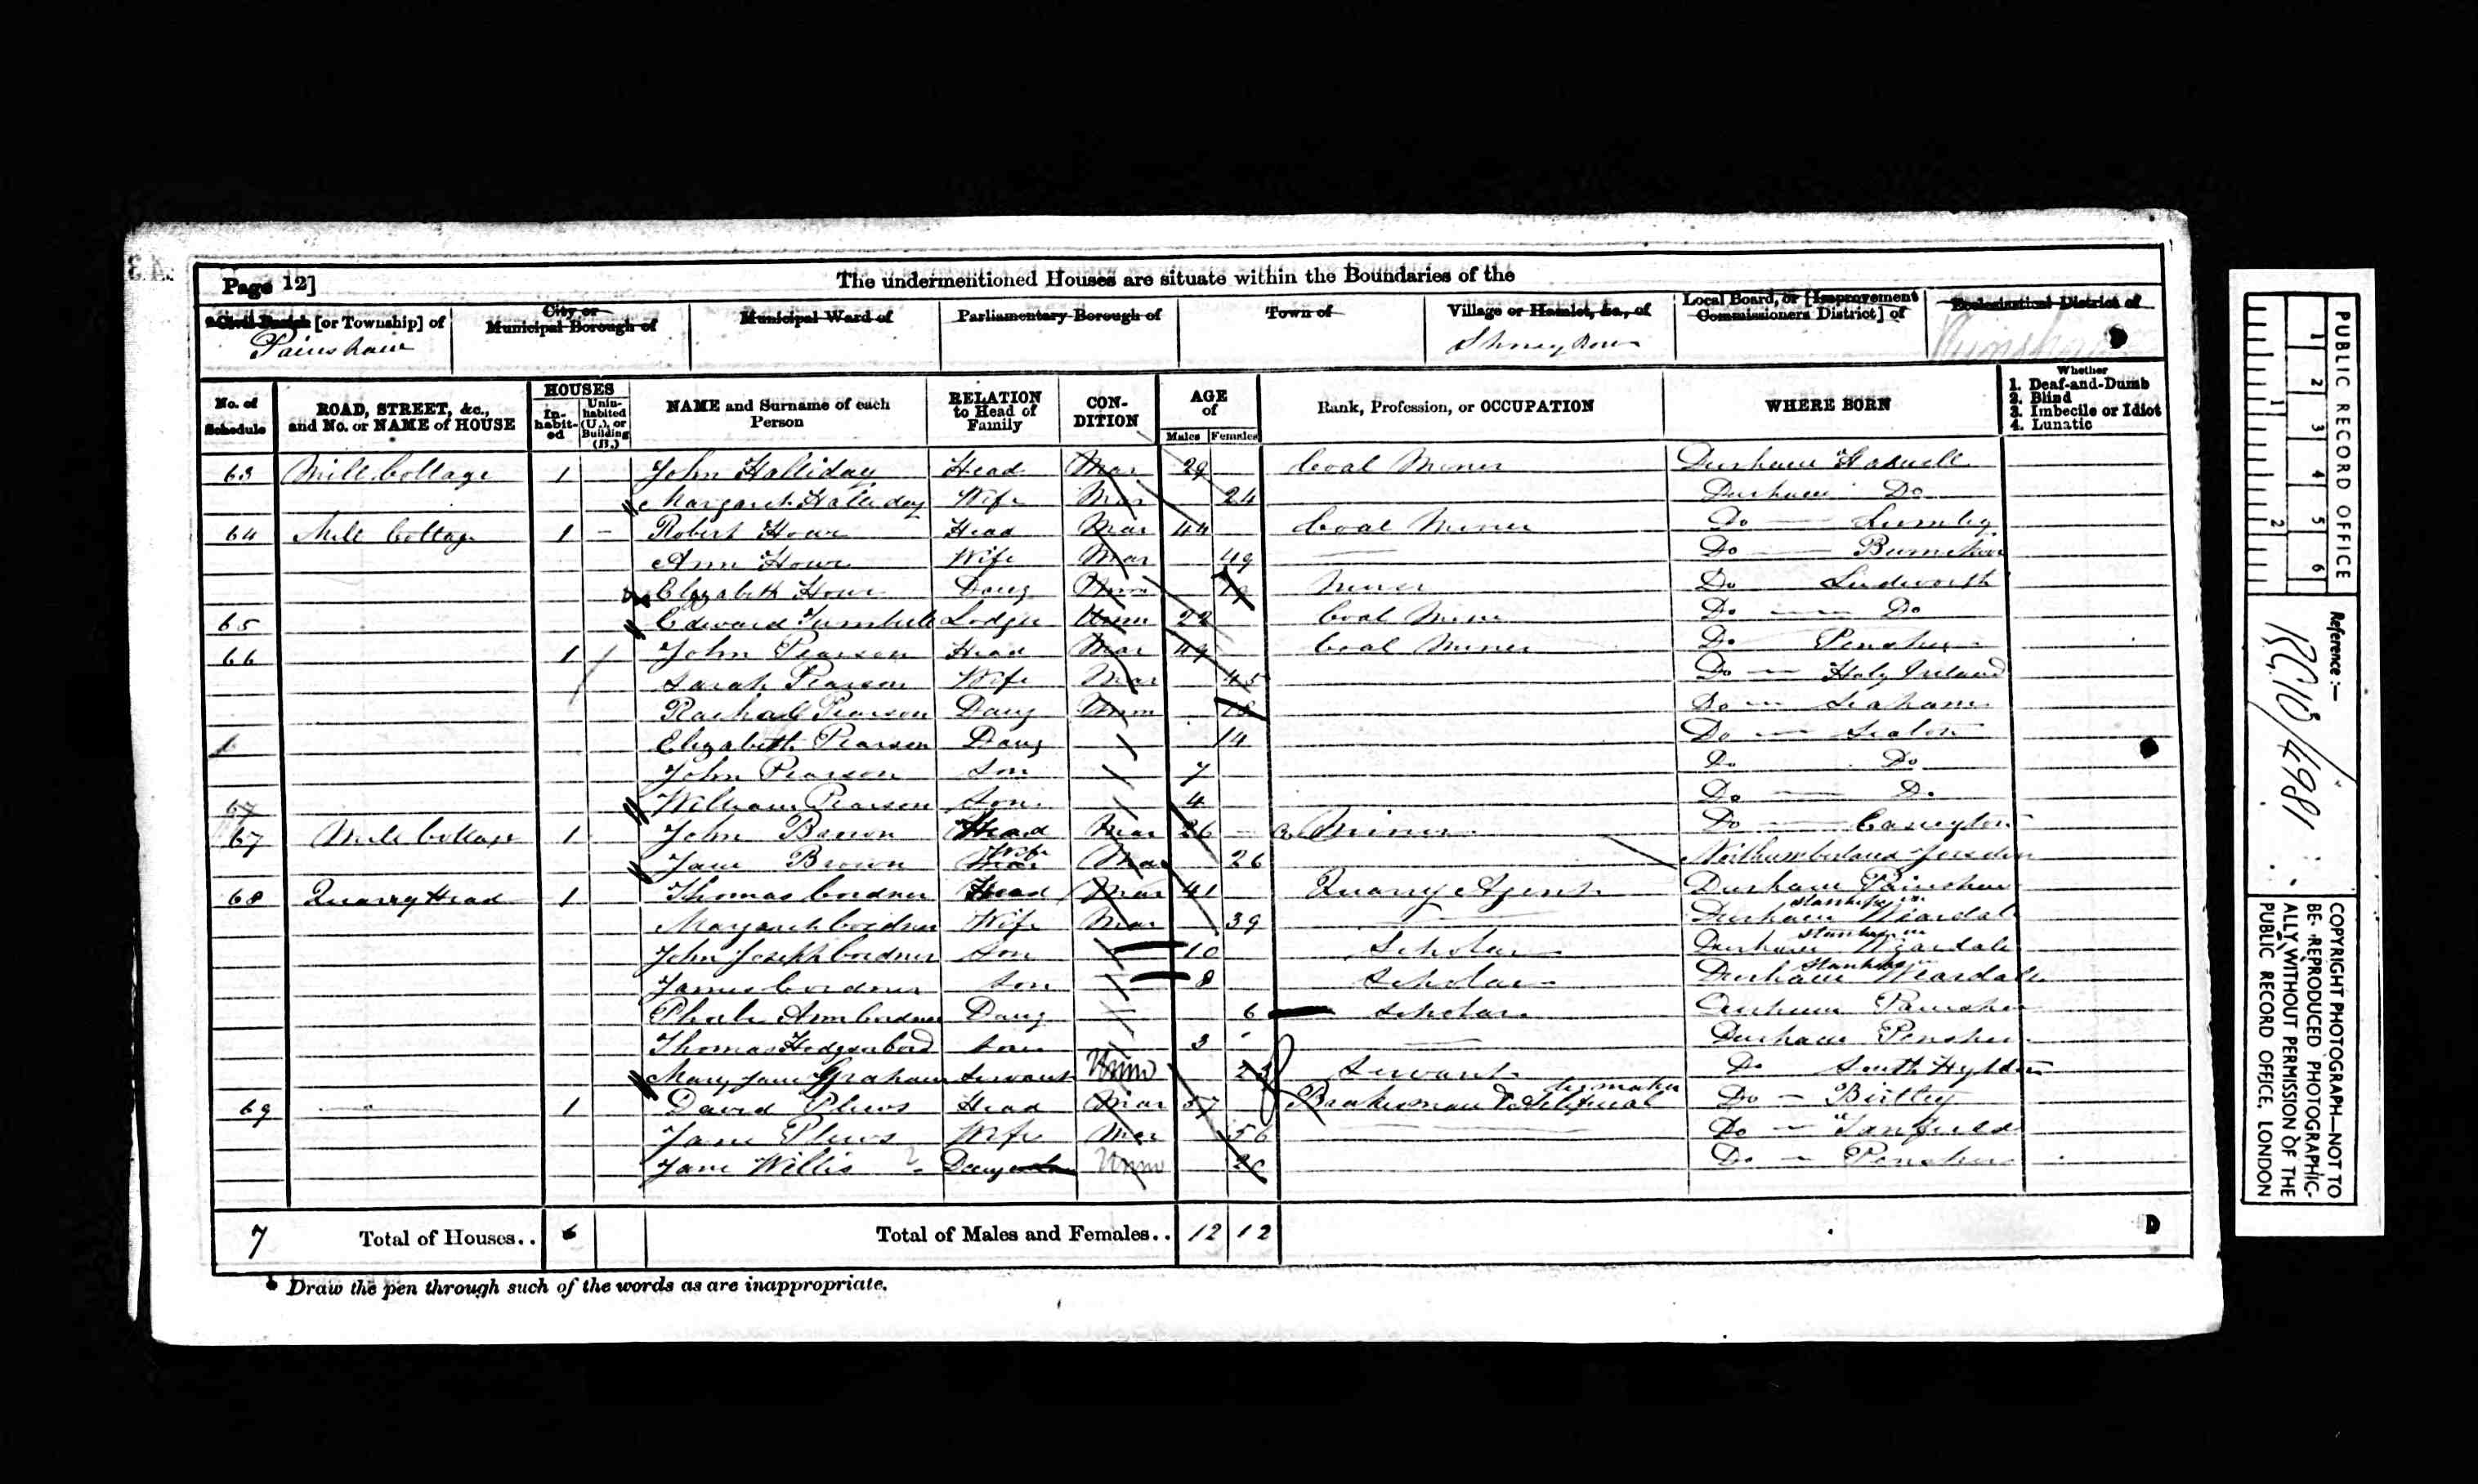 Page 12]
The undermentioned Houses are situate within the Boundaries of the
Civil Parish [or Township] of
City or Municipal Borough of
Municipal Ward of
Parliamentary Borough of
Town of
Village or Hamlet, &c., of
Local Board, or [Improvement Commissioners District] of
Ecclesiastical District of
Painshaw
No. of Schedule
ROAD, STREET, &c., and No. or NAME of HOUSE
HOUSES
In-habit-ed
Unin-habited (U.), or Building (B.)
NAME and Surname of each Person
RELATION to Head of Family
CON-DITION
AGE of
Males
Females
Rank, Profession, or OCCUPATION
WHERE BORN
Whether
1. Deaf-and-Dumb
2. Blind
3. Imbecile or Idiot
4. Lunatic
63 Mill Cottage 1 John Halliday Head Mar 29 Coal Miner Durham Haswell
Margaret Halliday Wife Mar 24 Durham Do
64 Mill Cottage 1 - Robert Howe Head Mar 44 Coal Miner Do Lumley
Ann Howe Wife Mar 49 Do
Elizabeth Howe Daug Unm Do Ludworth
65 Edward Turnbull Lodger Unm 22 Coal Miner Do Do
66 1 John Pearson Head Mar 49 Coal Miner Do Pensher
Sarah Pearson Wife Mar 45 Do
Rachael Pearson Daug Unm 18 Do Seaham
1 Elizabeth Pearson Daug 14 Do Seaton
John Pearson Son 7 Do Do
67 William Pearson Son 4 Do Do
67 Mill Cottage 1 John Brown Head Mar 26 Miner Do
Jane Brown Wife Mar 26 Northumberland
68 Quarry Head 1 Thomas Cordner Head Mar 41 Quarry Agent Durham Painshaw
Margaret Cordner Wife Mar 39 Durham Stanhope in Weardale
John Joseph Cordner Son 10 Scholar Durham Stanhope in Weardale
James Cordner Son 8 Scholar Durham Stanhope in Weardale
Phoebe Ann Cordner Daug 6 Scholar Durham Painsher
Thomas Hodgson Cord Son 3 Durham Pensher
Mary Jane Graham Servant Unm 23 Servant Do South Hylton
69 1 David Plews Head Mar 57 Brakesman Do Birtley
Jane Plews Wife Mar 56 Do Tanfield
Jane Willis Daug Unm 20 Do Pensher
7 Total of Houses.. 6 Total of Males and Females.. 12 12
Draw the pen through such of the words as are inappropriate.
PUBLIC RECORD OFFICE
1 2 3 4 5 6
1 2
Reference:—
RG10/4981
COPYRIGHT PHOTOGRAPH—NOT TO BE REPRODUCED PHOTOGRAPHIC-ALLY WITHOUT PERMISSION OF THE PUBLIC RECORD OFFICE, LONDON